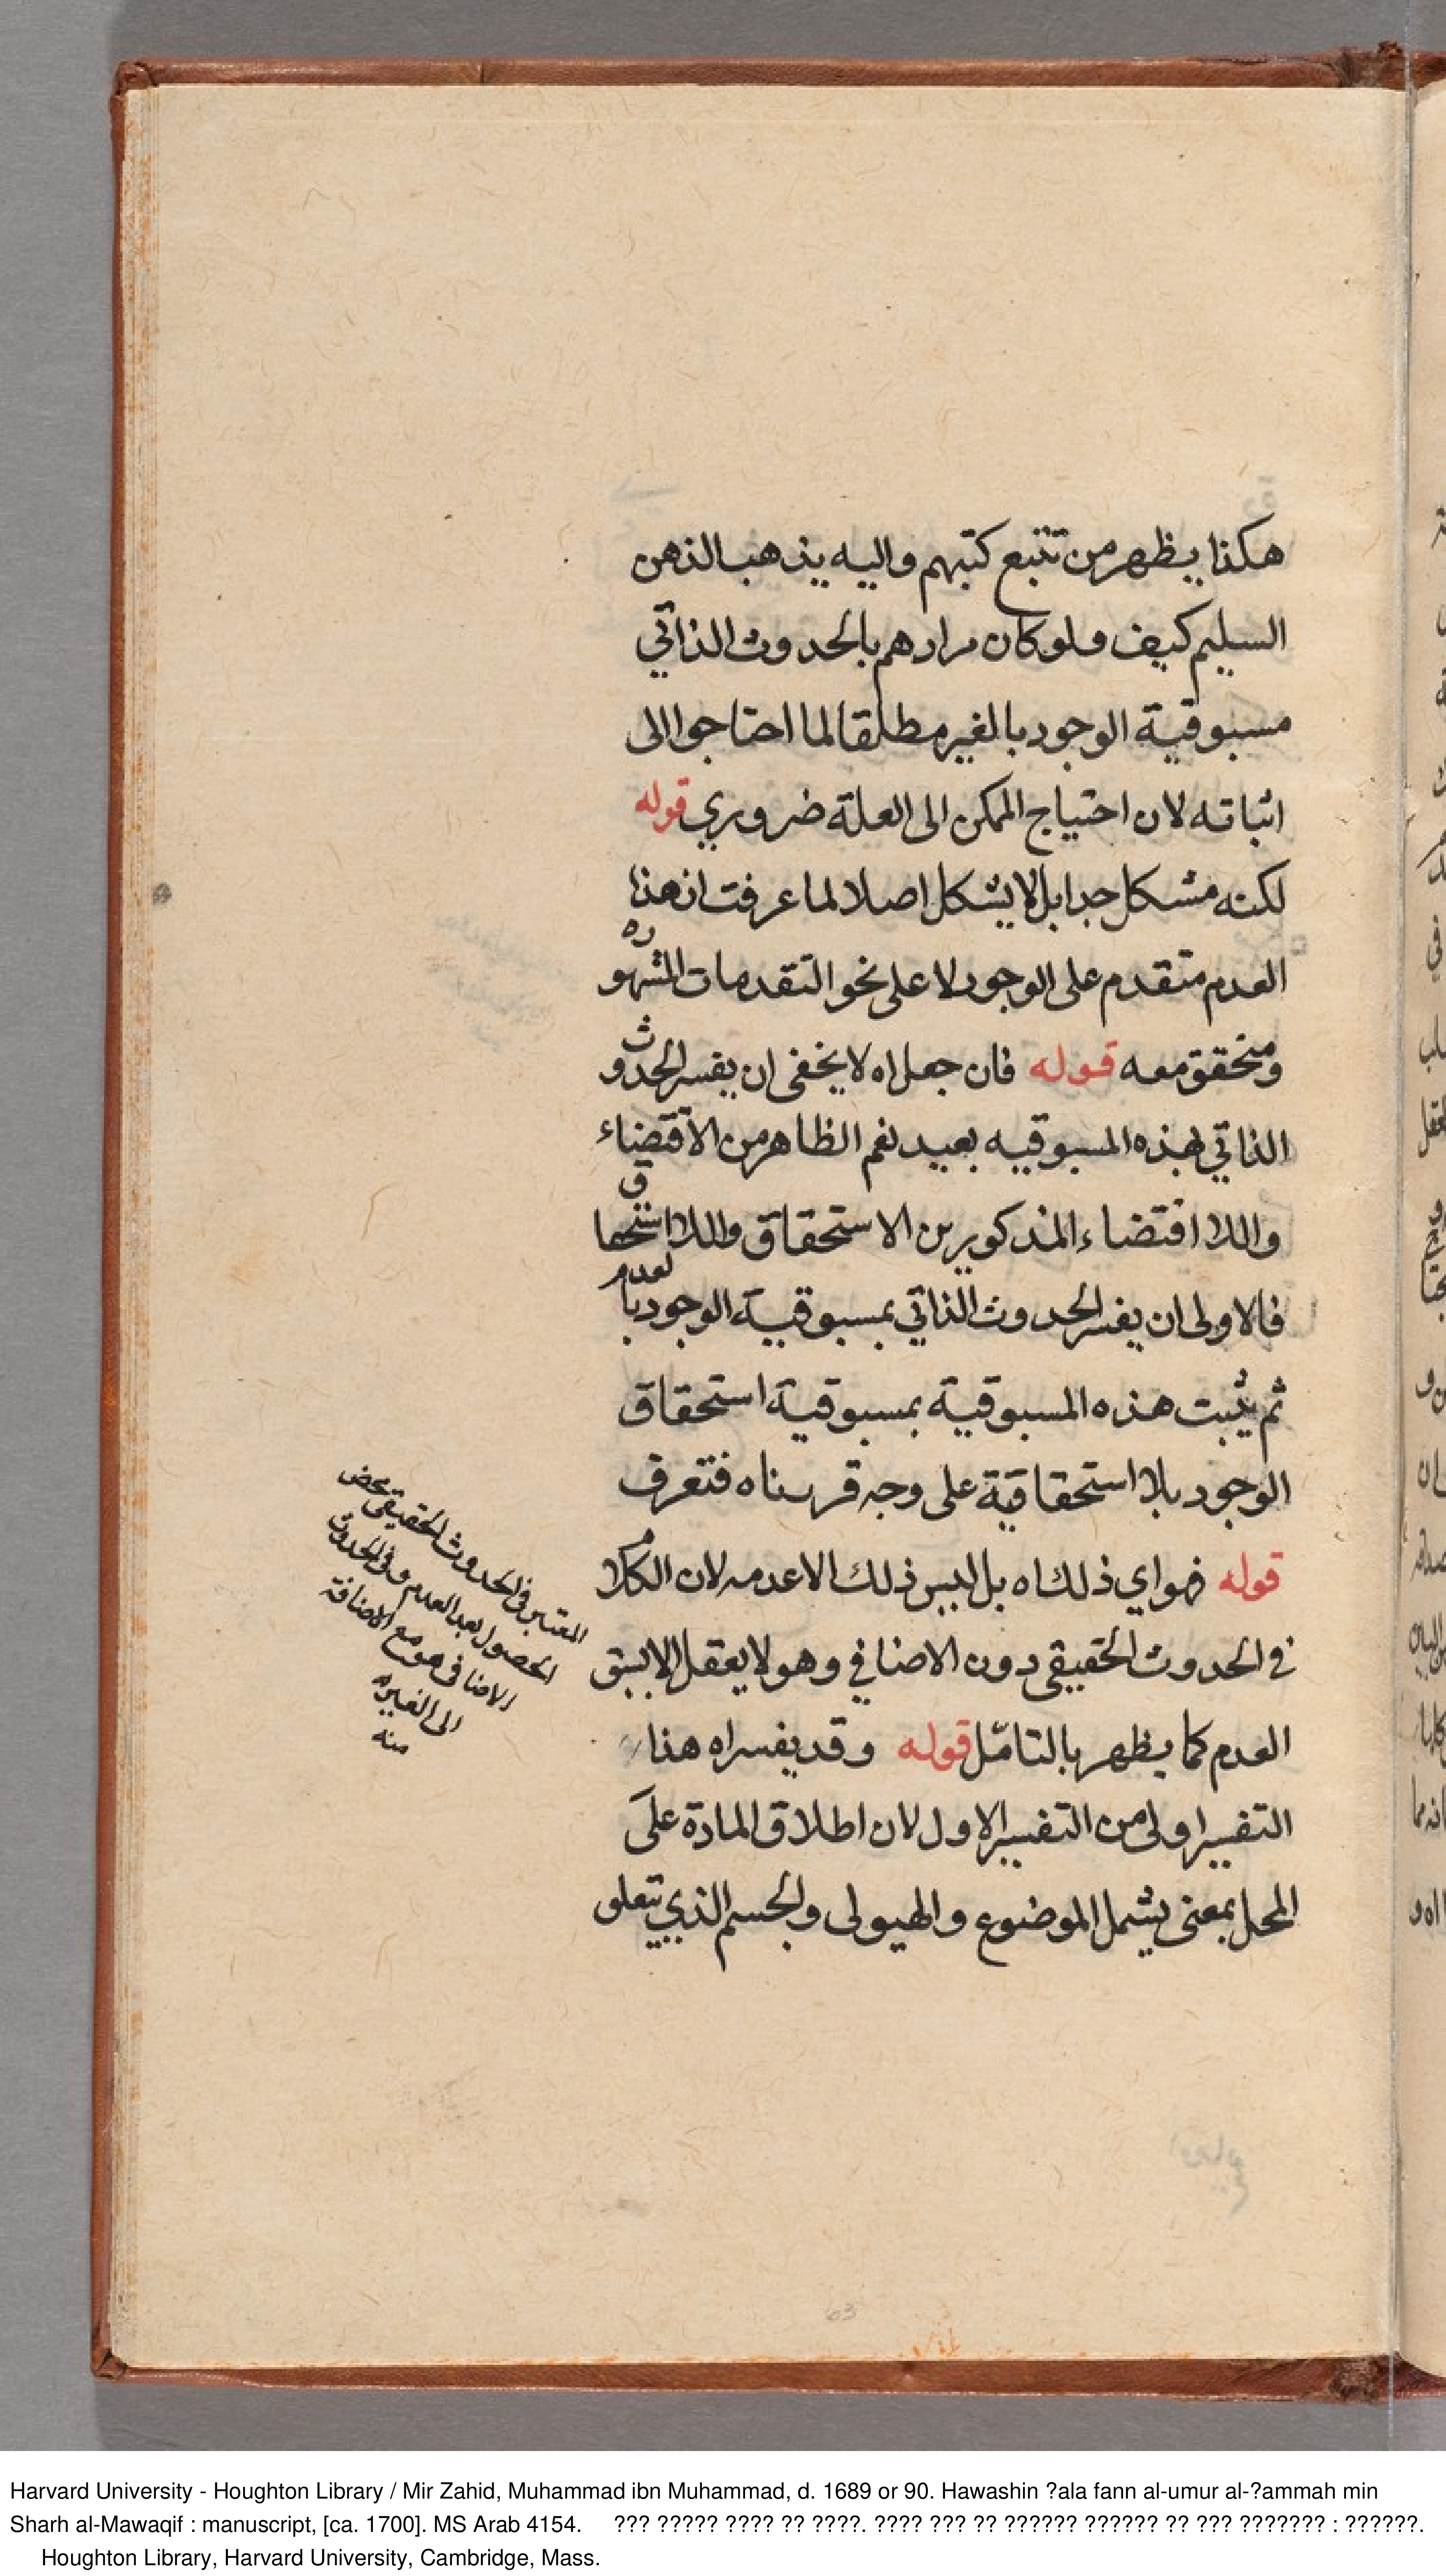 هكذا يظهر من تتبع كتبهم واليه يذهب الذهن
السليم كيف ولو كان مرادهم بالحدوث الذاتي
مسبوقية الوجود بالغير مطلقا لما احتاجوا الى
اثباته لان احتياج الممكن الى العلة ضروري قوله
لكنه مشكل جدا بل لا يشكل اصلا لما عرفت ان هذا
العدم متقدم على الوجود لا على نحو التقدمات المشهوره
ومتحقق معه قوله فان جعل اه لا يخفى ان يفسر الحدوث
الذاتي بهذه المسبوقيه بعيد نعم الظاهر من الاقتضاء
واللا اقتضاء المذكورين الاستحقاق واللا استحقاق
فالاولى ان يفسر الحدوث الذاتي بمسبوقية الوجود بالعدم
ثم يثبت هذه المسبوقية بمسبوقية استحقاق
الوجود بلا استحقاقية على وجه قررناه فتعرف
قوله فهو اي ذلك اه بل ليس ذلك الا عدمه لان الكلام
في الحدوث الحقيقي دون الاضافي وهو لا يعقل الا بسبق
العدم كما يظهر بالتامّل قوله وقد يفسر اه هذا
التفسير اولى من التفسير الاول لان اطلاق المادة على
المحل بمعنى يشمل الموضوع والهيولى والجسم الذي يتعلق
المعتبر في الحدوث الحقيقي محض
الحصول بعد العدم وفي الحدوث
الاضافي هو مع الاضافة
الى الغير
منه
63
Harvard University - Houghton Library / Mir Zahid, Muhammad ibn Muhammad, d. 1689 or 90. Hawashin ?ala fann al-umur al-?ammah min
Sharh al-Mawaqif : manuscript, [ca. 1700]. MS Arab 4154. ??? ????? ???? ?? ????. ???? ??? ?? ?????? ?????? ?? ??? ??????? : ??????.
Houghton Library, Harvard University, Cambridge, Mass.